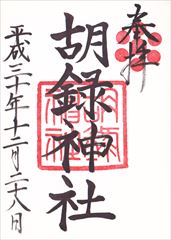 奉拝
胡録神社
平成三十年十二月二十八日